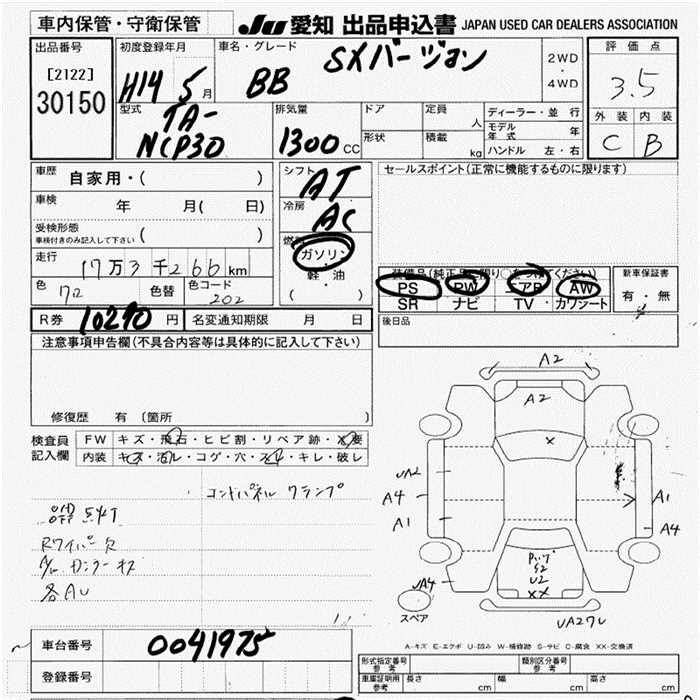 車内保管・守衛保管 JU 愛知 出品申込書 JAPAN USED CAR DEALERS ASSOCIATION
出品番号 初度登録年月 車名・グレード 評価点
[2122] H14 5月 BB SXバージョン 2WD・4WD 3.5
30150
型式 排気量 ドア 定員 人 ディーラー・並行 外装 内装
TA-
NCP30 1300 CC 形状 積載 kg モデル年式 年 C B
ハンドル 左・右
車歴 自家用・( ) シフト AT セールスポイント(正常に機能するものに限ります)
車検 年 月( 日) 冷房 AC
受検形態
車検付きのみ記入して下さい ( ) 燃料 ガソリン
走行 17万3千266km 軽・油
色 色替 色コード 202 ( ・ )
装備品(純正品に限り○をつけてください) 新車保証書
PS PW エアB AW 有・無
SR ナビ TV カワシート
R券 10290 円 名変通知期限 月 日 後日品
注意事項申告欄(不具合内容等は具体的に記入して下さい)
修復歴 有 (箇所
検査員 FW キズ・飛石・ヒビ割・リペア跡・X要
記入欄 内装 キズ・汚レ・コゲ・穴・スレ・キレ・破レ
コンドパネル クランプ
点灯
Rワイパー欠
各AU
A2
A2
X
UA2
A4
A1
A1
A4
S2
U2
XX
UA4
UA27U
スペア
A-キズ E-エクボ U-凹み W-補修跡 S-サビ C-腐食 XX-交換済
車台番号 0041975
登録番号
形式指定番号 参考 類別区分番号 参考
車庫証明用 参考 長さ cm 幅 cm 高さ cm